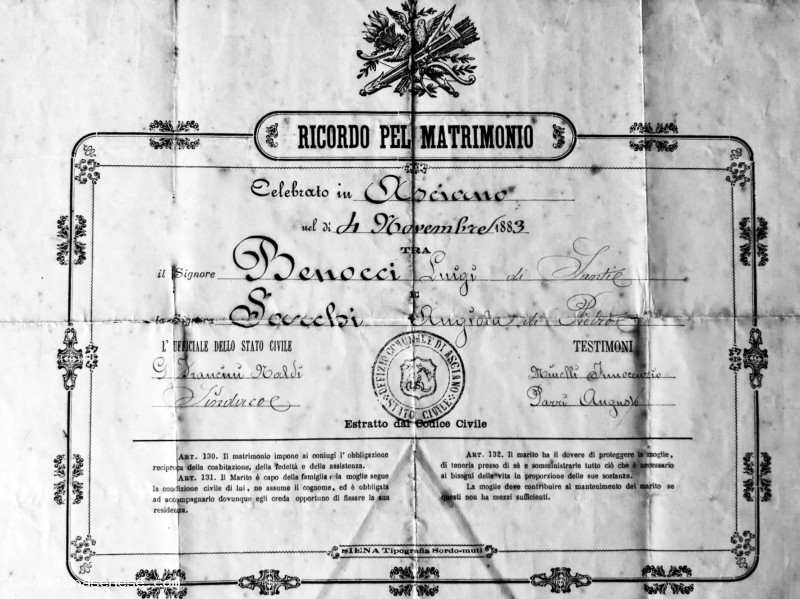 RICORDO PEL MATRIMONIO
Celebrato in Asciano
nel dì 4 Novembre 1883
TRA
il Signore Benocci Luigi di Santi
E
la Signora Sacchi Angiola di Pietro
L' UFFICIALE DELLO STATO CIVILE
Sindaco
UFFIZIO COMUNALE DI ASCIANO
STATO CIVILE
TESTIMONI
Minelli Innocenzio
Parri Augusto
Estratto dal Codice Civile
ART. 130. Il matrimonio impone ai coniugi l' obbligazione
reciproca della coabitazione, della fedeltà e della assistenza.
ART. 131. Il Marito è capo della famiglia: la moglie segue
la condizione civile di lui, ne assume il cognome, ed è obbligata
ad accompagnarlo dovunque egli creda opportuno di fissare la sua
residenza.
ART. 132. Il marito ha il dovere di proteggere la moglie,
di tenerla presso di sè e somministrarle tutto ciò che è necessario
ai bisogni della vita in proporzione delle sue sostanze.
La moglie deve contribuire al mantenimento del marito se
questi non ha mezzi sufficienti.
SIENA Tipografia Sordo-muti